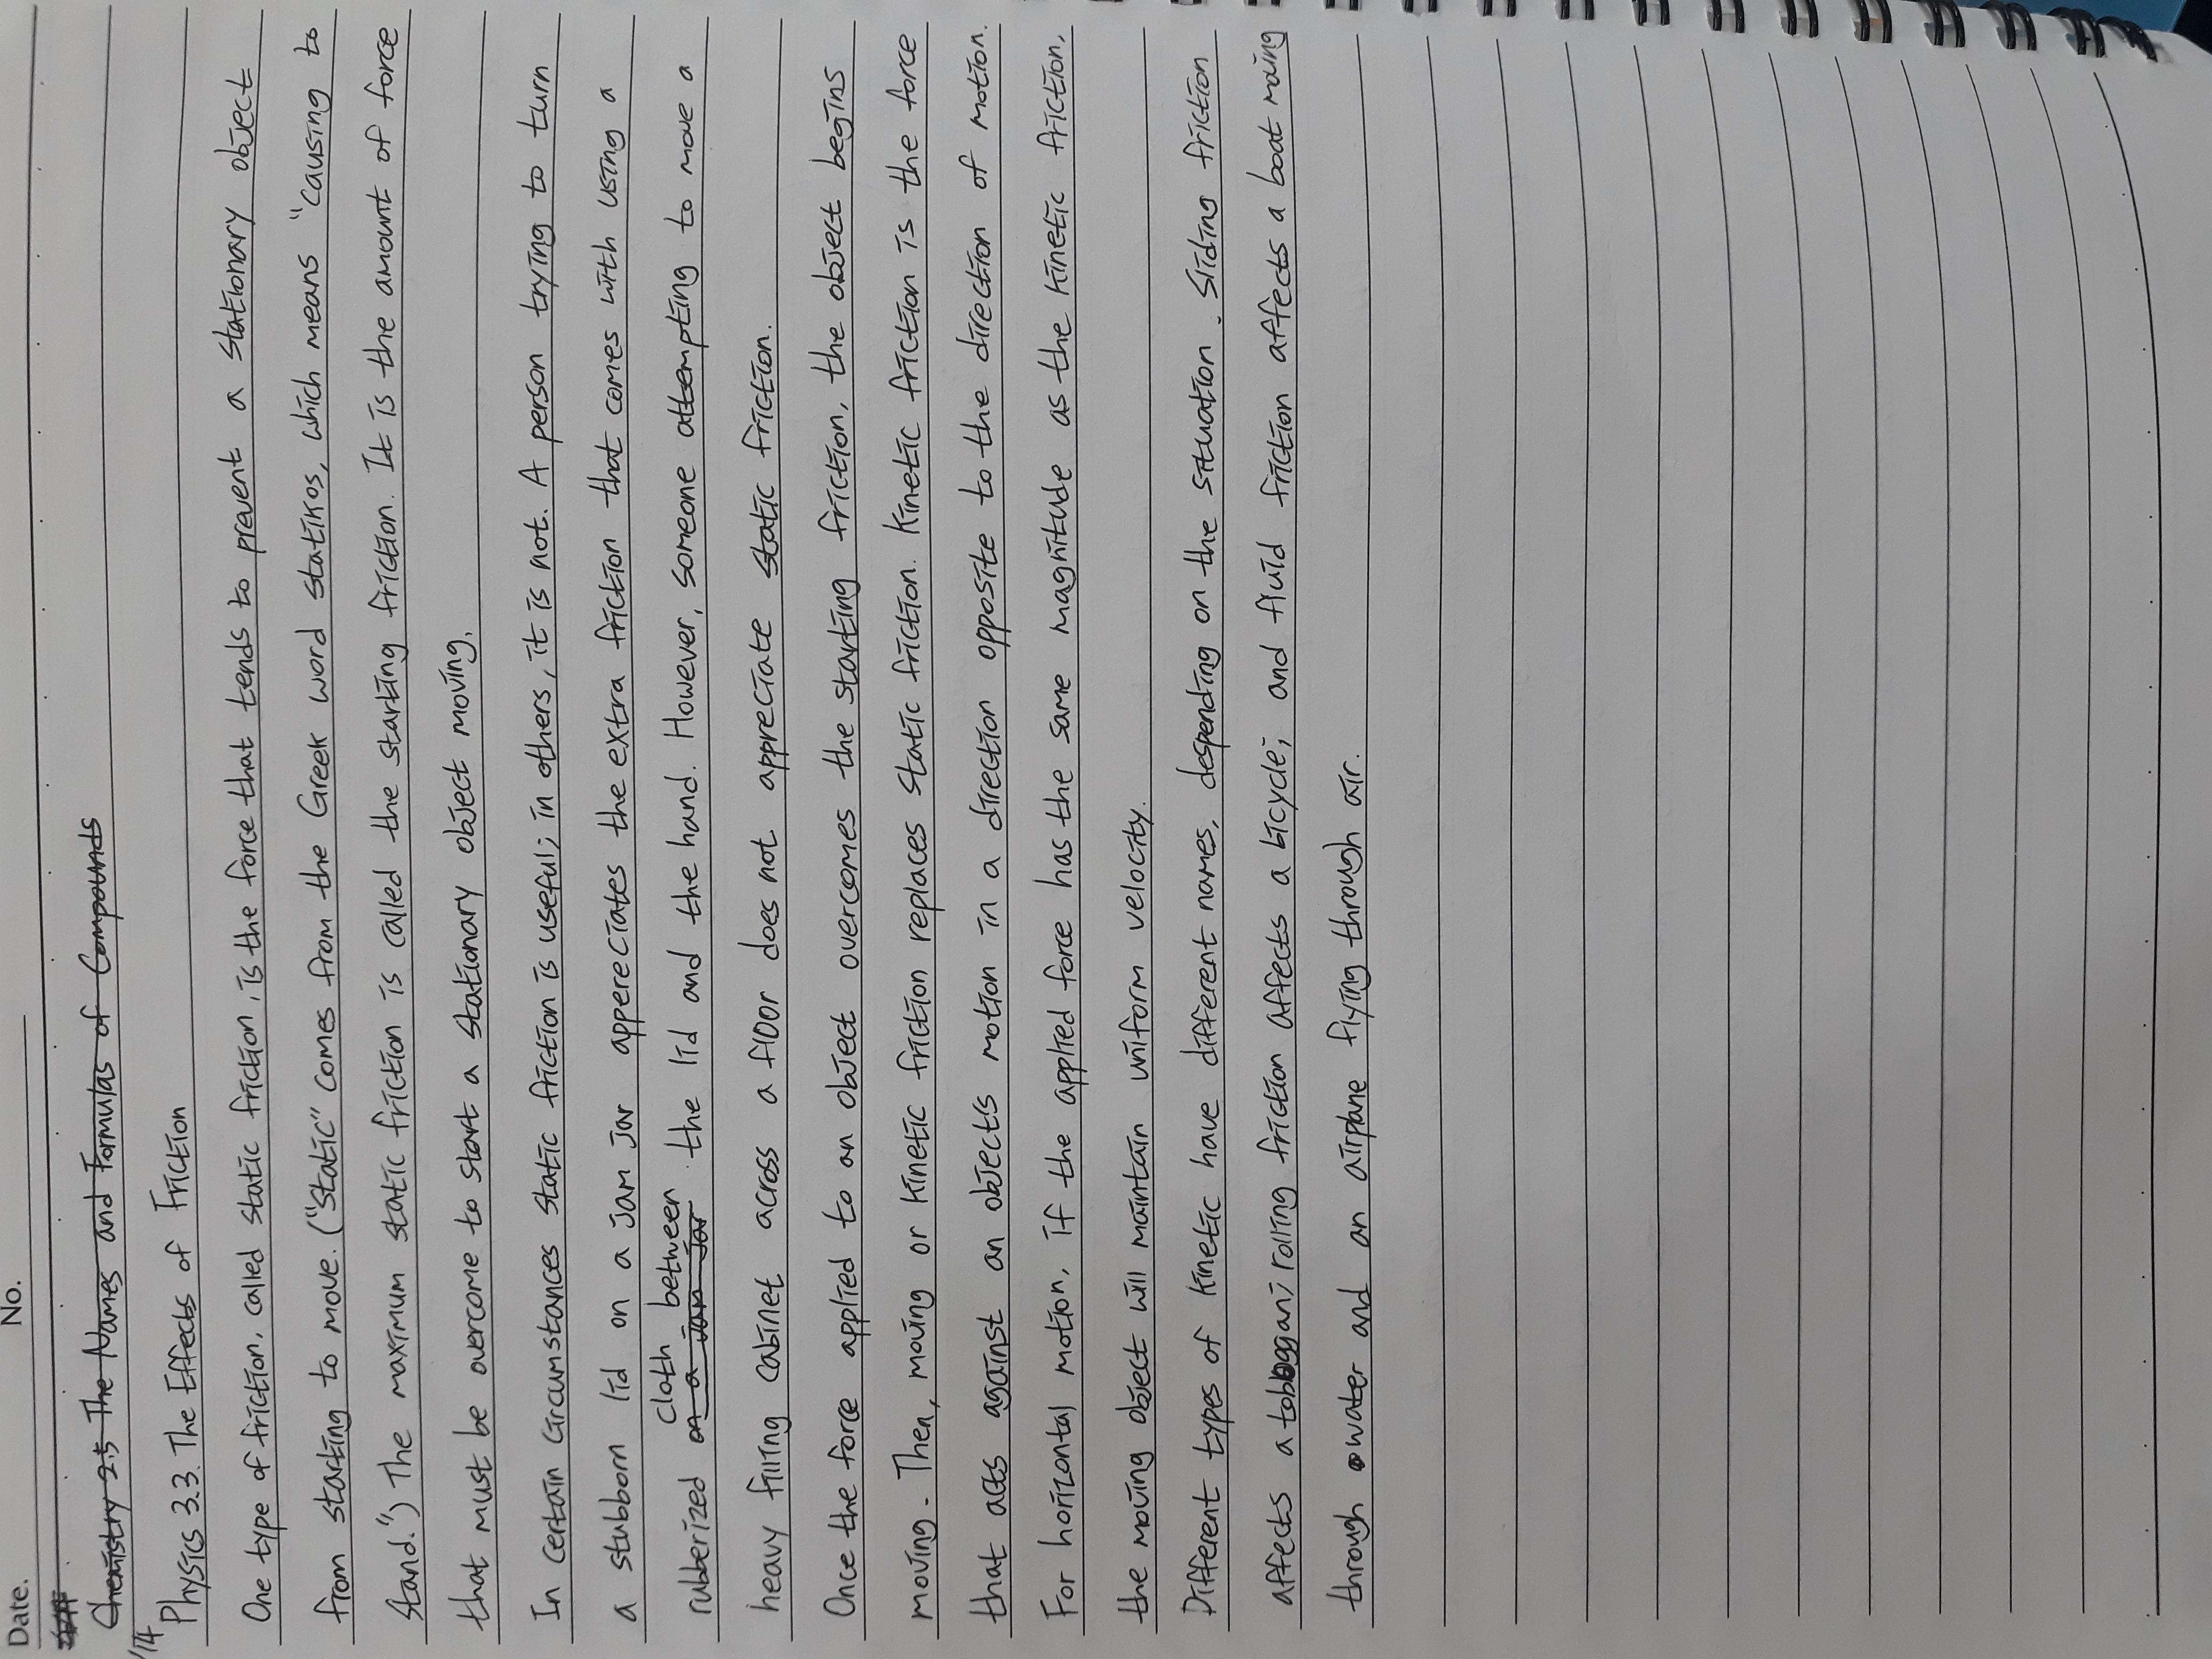 Date. No.
Chemistry 2.5 The Names and Formulas of Compounds
1/14
Physics 3.3. The Effects of Friction
One type of friction, called static friction, is the force that tends to prevent a stationary object
from starting to move. ("Static" comes from the Greek word statikos, which means "causing to
stand.") The maximum static friction is called the starting friction. It is the amount of force
that must be overcome to start a stationary object moving.
In certain circumstances static friction is useful; in others, it is not. A person trying to turn
a stubborn lid on a jam jar appereciates the extra friction that comes with using a
rubberized on a jam jar cloth between the lid and the hand. However, someone attempting to move a
heavy filling cabinet across a floor does not appreciate static friction.
Once the force applied to an object overcomes the starting friction, the object begins
moving. Then, moving or kinetic friction replaces static friction. Kinetic friction is the force
that acts against an object's motion in a direction opposite to the direction of motion.
For horizontal motion, if the applied force has the same magnitude as the kinetic friction,
the moving object will maintain uniform velocity.
Different types of kinetic have different names, despending on the situation. Sliding friction
affects a toboggan; rolling friction affects a bicycle; and fluid friction affects a boat moving
through water and an airplane flying through air.